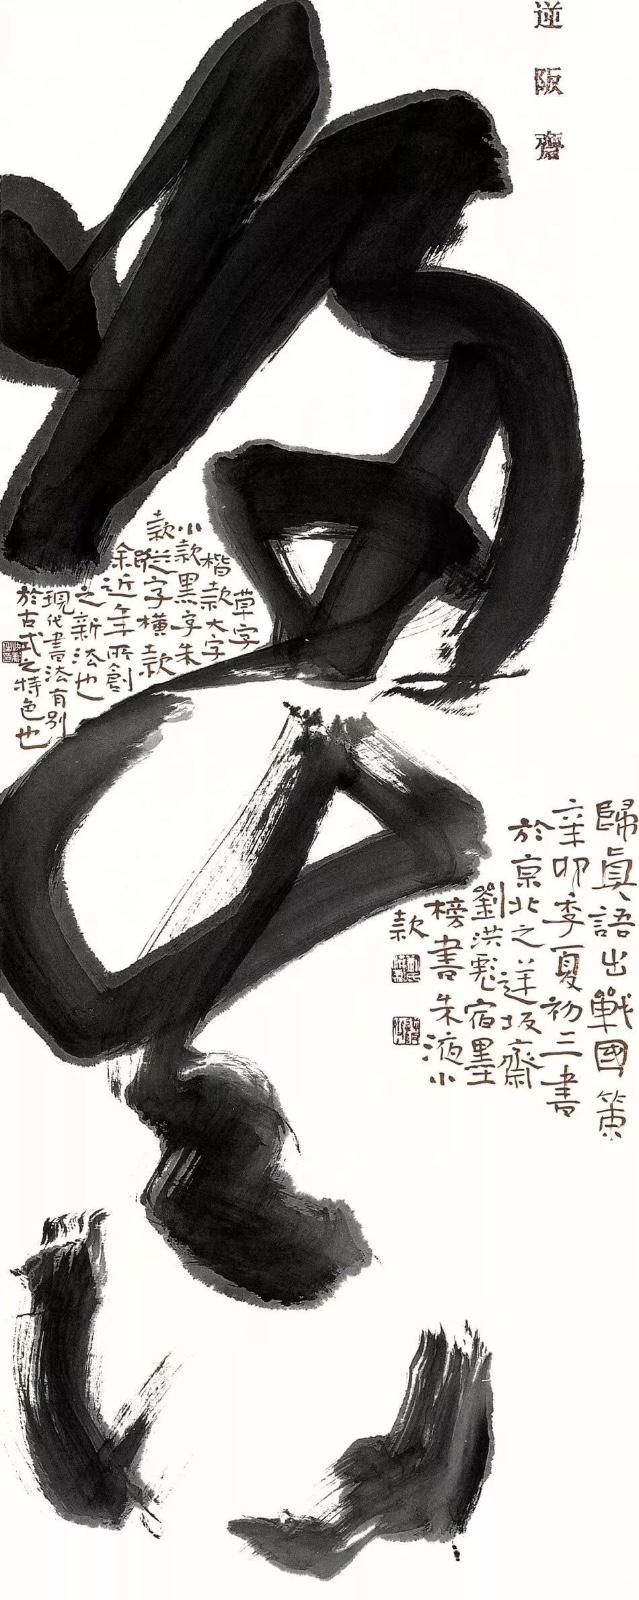 歸眞
逆阪齋
歸眞語出戰國策
辛卯季夏初三書
於京北之逆坂齋
劉洪彪宿墨
榜書朱液小
款
草字
楷款大字
小款黑字朱
款縱字橫款
余近年所創
之新法也
現代書法有別
於古式之特色也